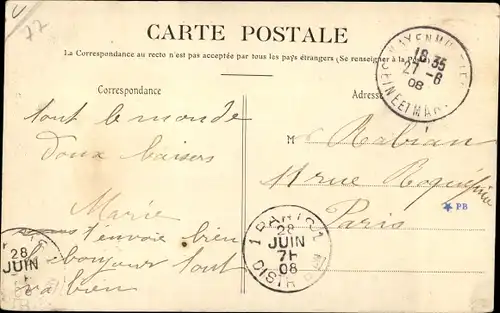 22
CARTE POSTALE
La Correspondance au recto n'est pas acceptée par tous les pays étrangers (Se renseigner à la Poste)
Correspondance
Adresse
18 35
27 - 8
08
SEINE ET MAR
tout le monde
Doux baisers
Marie
t'envoie bien
le bonjour tout
va bien
M Rabian
11 rue Roquépine
Paris
PB
28
JUIN
1 PARIS 1
28
JUIN
7H
08
DISTR